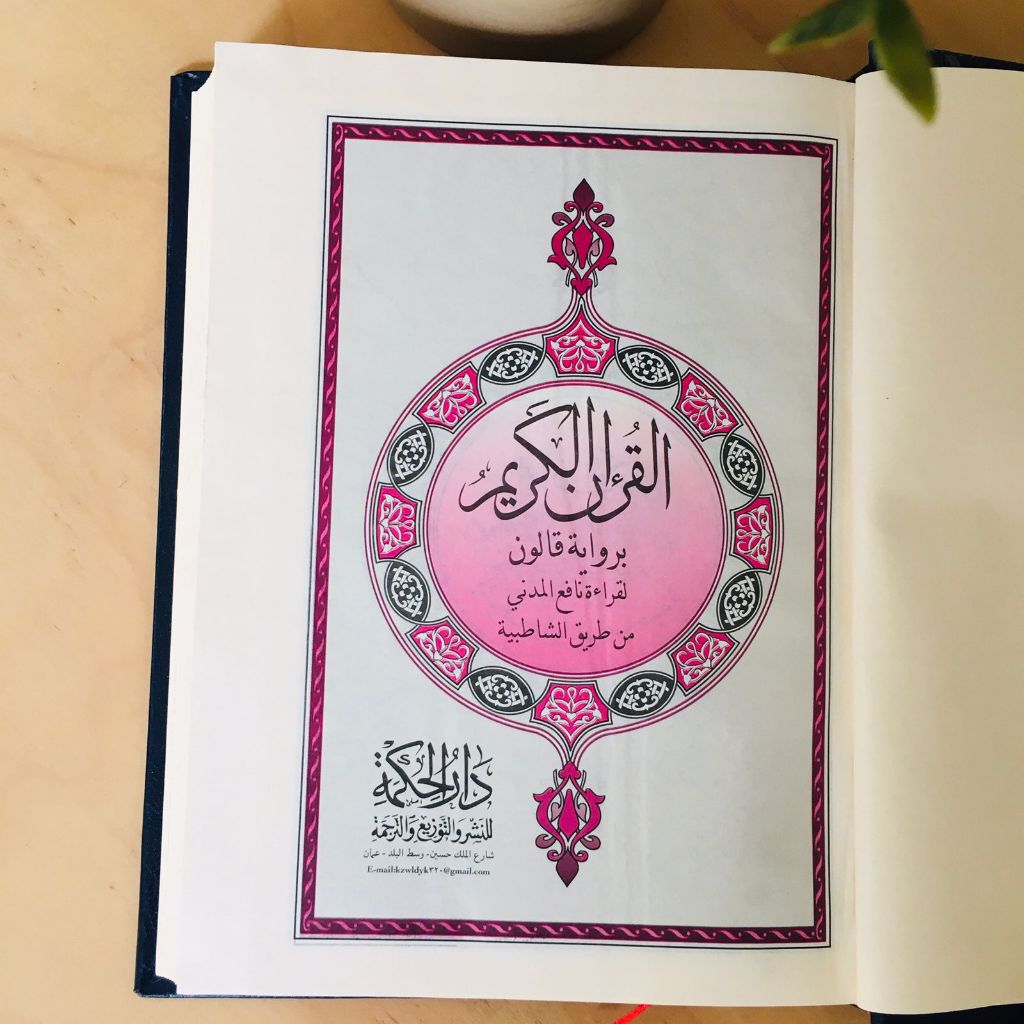 القرءان الكَريمُ
برواية قالون
لقراءة نافع المدني
من طريق الشاطبية
دَارُ الحِكمَة
للنشر والتوزيع والترجمة
شارع الملك حسين - وسط البلد - عمان
E-mail:kzwldyk٣٢٠@gmail.com